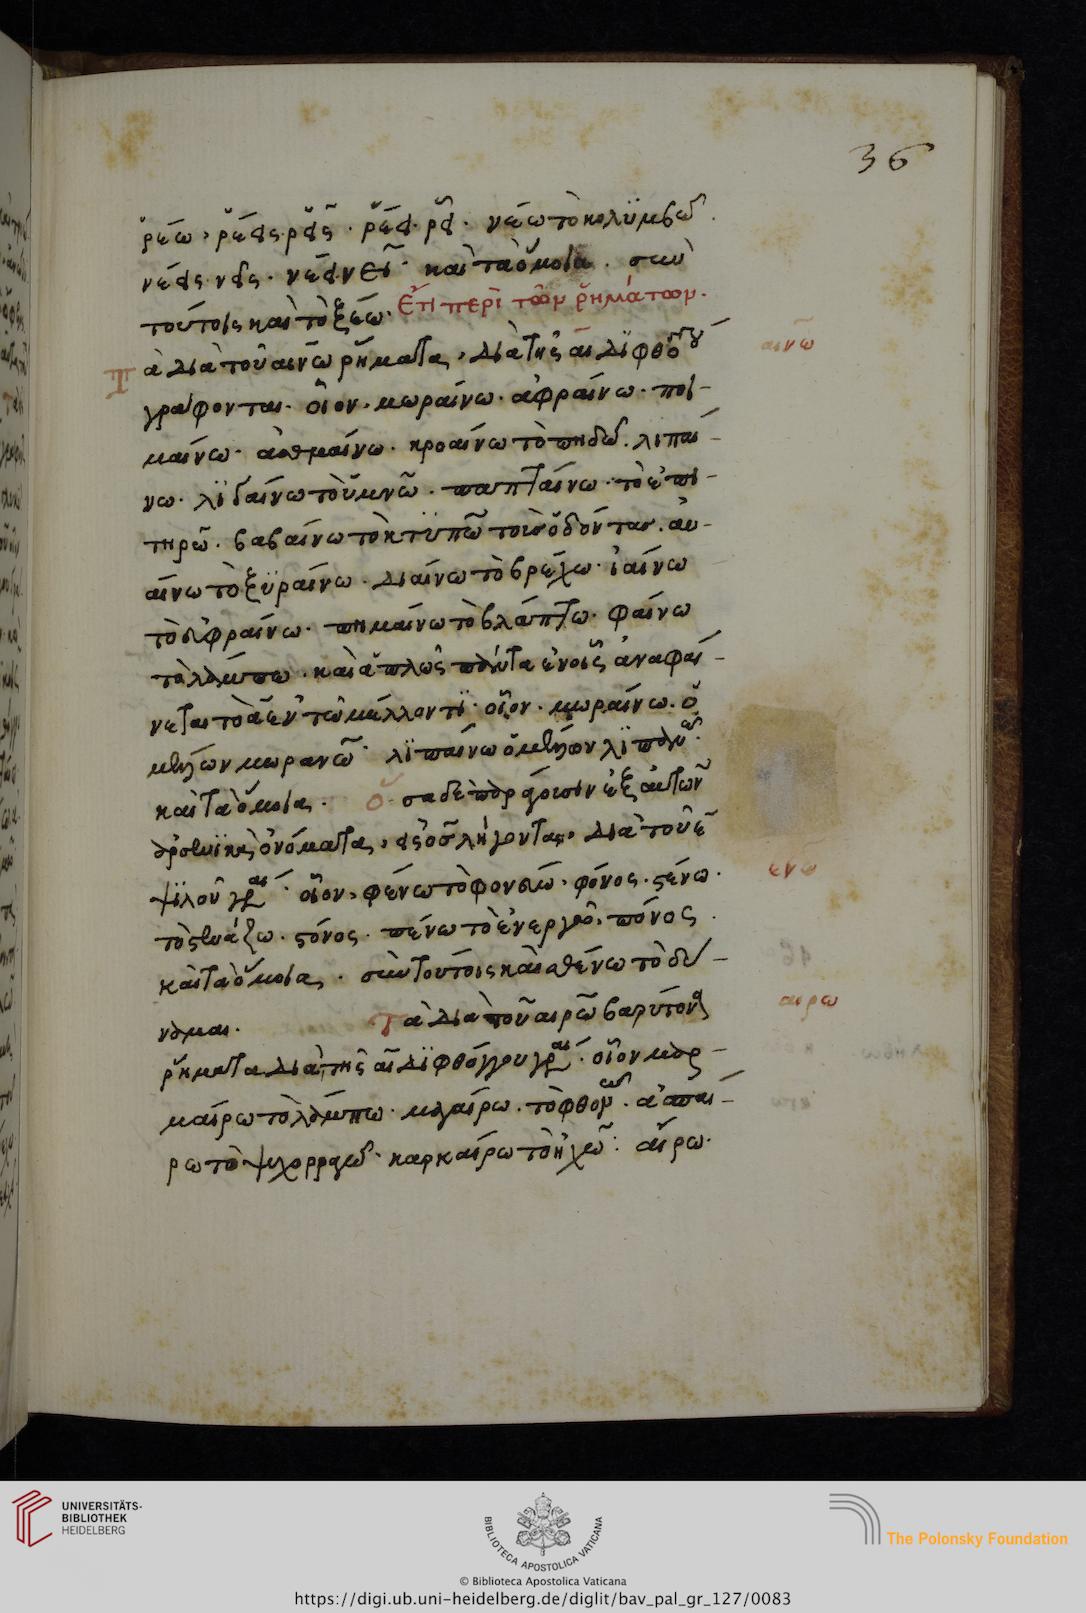 36
ῥέω, ῥέεις ῥεῖς · ῥέει ῥεῖ · νέω τὸ κολϋμβῶ.
νέεις νεῖς · νέει νεῖ · καὶ τὰ ὅμοια. σὺν
τούτοις καὶ τὸ ξέω. Ἔτι περὶ τῶν ῥημάτων.
Τὰ διὰ τοῦ αινω ῥήματα, διὰ τῆς αι διφθόγγου
αινω
γράφονται. οἷον, μωραίνω. ἀφραίνω. ποι-
μαίνω. ἀσθμαίνω. κροαίνω τὸ πηδῶ. λιπαί-
νω. λϊδαίνω τὸ ὑμνῶ. παπταίνω τὸ ἐπι-
τηρῶ. βαβαίνω τὸ κτϋπῶ τοὺς ὀδόντας. αὐ-
αίνω τὸ ξϋραίνω. διαίνω τὸ βρέχω. ἰαίνω
τὸ εὐφραίνω. πημαίνω τὸ βλάπτω. φαίνω
τὸ λάμπω. καὶ ἁπλῶς πάντα ἐν οἷς ἀναφαί-
νεται τὸ α ἐν τῷ μέλλοντϊ. οἷον. μωραίνω. ὁ
μέλλων μωρανῶ. λϊπαίνω ὁ μέλλων λϊπανῶ.
καὶ τὰ ὅμοια. ὅσα δὲ παράγουσιν ἐξ αὐτῶν
ἀρσενϊκὰ ὀνόματα, εἰς ος λήγοντα, διὰ τοῦ ε
ψϊλοῦ γράφεται. οἷον, φένω τὸ φονεύω, φόνος. στένω
ενω
τὸ στενάζω. στόνος. πένω τὸ ἐνεργῶ, πόνος
καὶ τὰ ὅμοια. σὺν τούτοις καὶ σθένω τὸ δύ-
ναμαι. Τὰ διὰ τοῦ αιρω βαρύτονα
αιρω
ῥήματα διὰ τῆς αι δϊφθόγγου γράφεται. οἷον μαρ-
μαίρω τὸ λάμπω. μεγαίρω. τὸ φθονῶ. ἀσπαί-
ρω τὸ ψυχορραγῶ. καρκαίρω τὸ ἠχῶ. αἴρω.
UNIVERSITÄTS-
BIBLIOTHEK
HEIDELBERG
BIBLIOTECA APOSTOLICA VATICANA
The Polonsky Foundation
© Biblioteca Apostolica Vaticana
https://digi.ub.uni-heidelberg.de/diglit/bav_pal_gr_127/0083